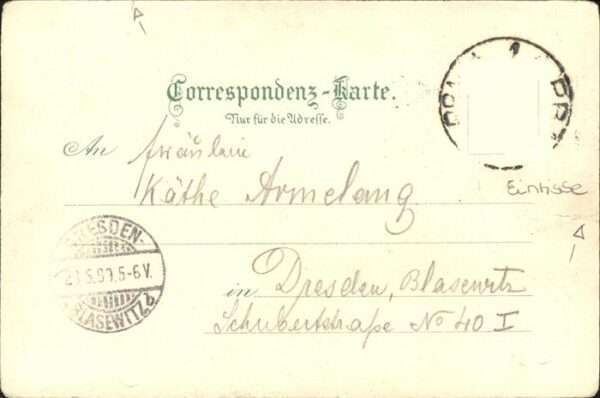 Correspondenz-Karte.
Nur für die Adresse.
An Fräulein
Käthe Armelang
Einrisse
DRESDEN-
5-6V.
BLASEWITZ
in Dresden, Blasewitz
Schubertstraße No 40 I